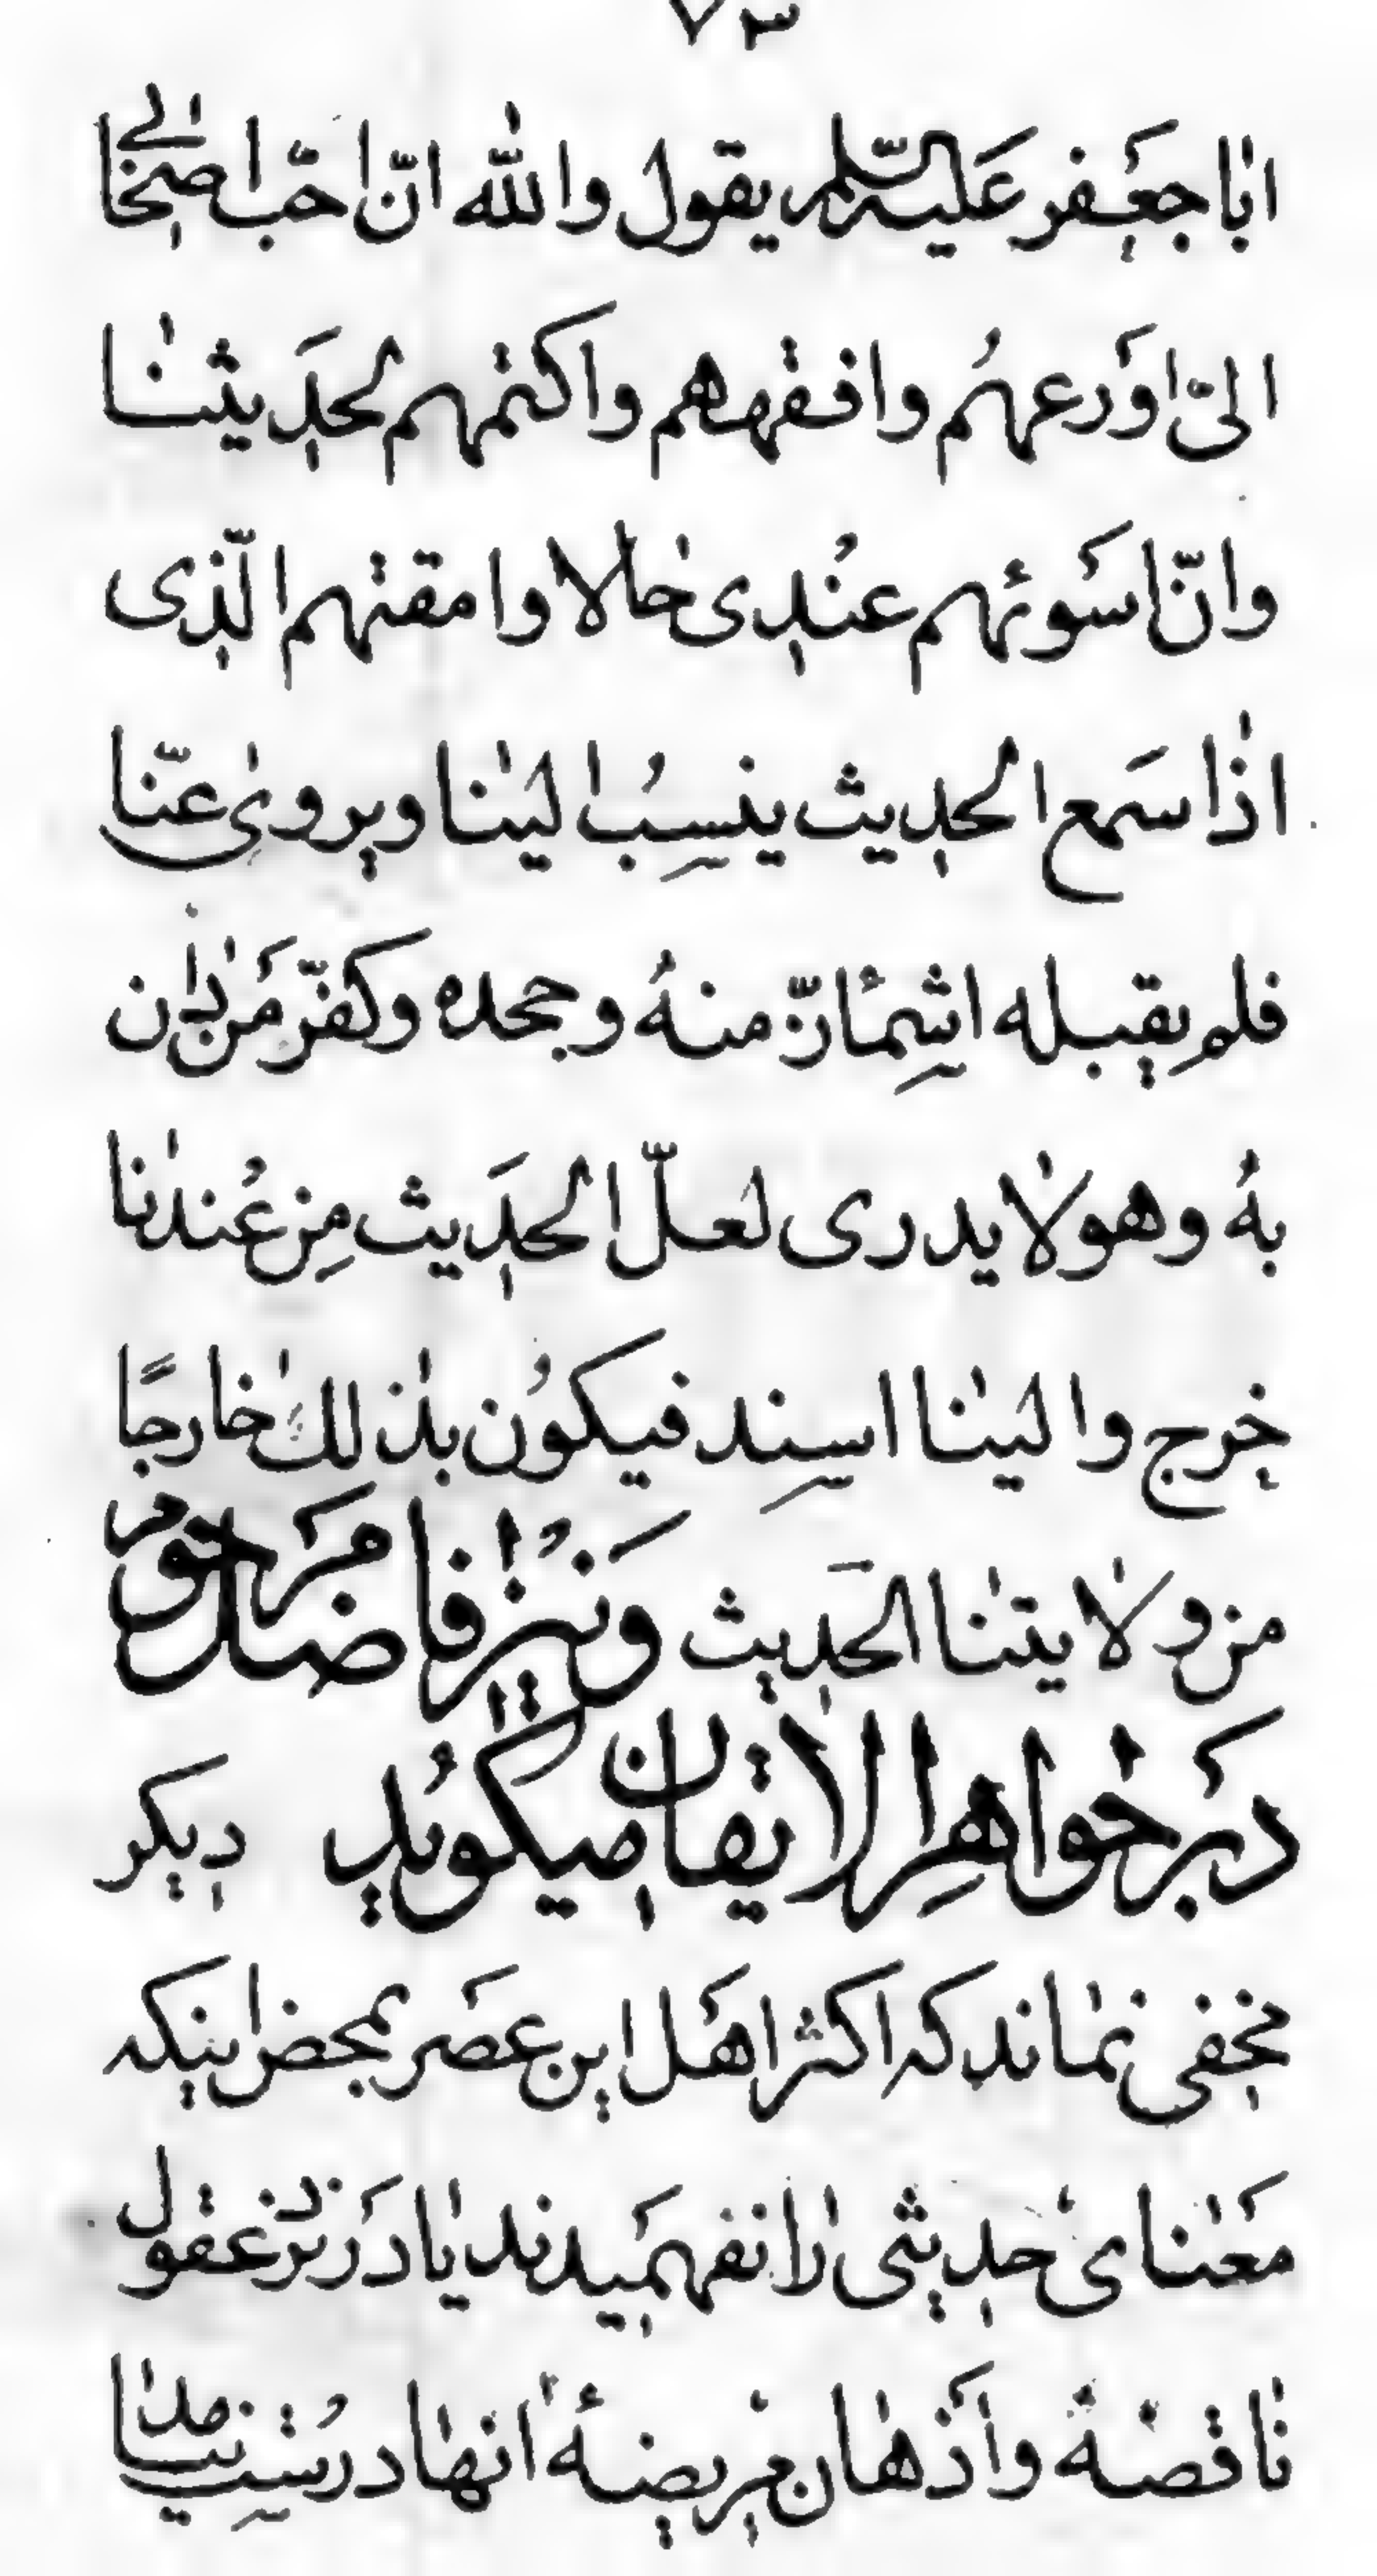 ٧٣
ابا جعفر عليه السلم يقول والله انّ احبّ اصحابى
الىّ اورعهم وافقههم واكتمهم لحديثنا
وانّ اسوئهم عندى حالا وامقتهم الّذى
اذا سمع الحديث ينسب الينا ويروى عنّا
فلم يقبله اشمئازّ منه وجحده وكفّر من دان
به وهو لا يدرى لعلّ الحديث من عندنا
خرج والينا اسند فيكون بذلك خارجًا
من ولايتنا الحديث ونیز فاضل مرحوم
در جواهر الایقان میگوید دیکر
مخفی نماند که اکثر اهل این عصر بمحض اینکه
معنای حدیثی را نفهمیدند یا در نزد عقول
ناقصه و اذهان مریضهٔ انها درست نیامد